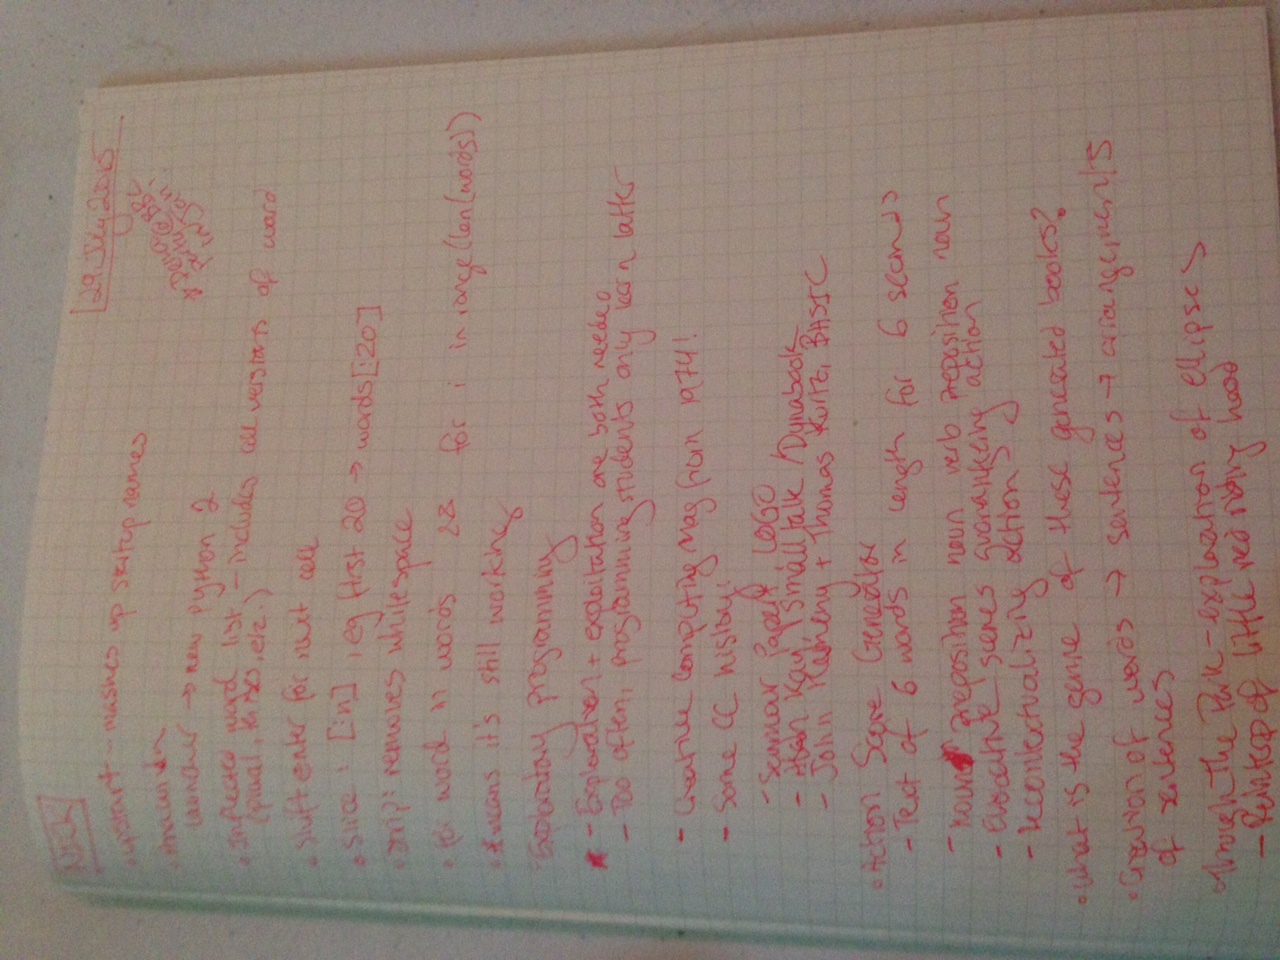 Nick
29 July 2015
• upstart – mashes up startup names
launcher → new python 2
• Inflected word list – includes all versions of word
(plural, tenses, etc.)
• Shift enter for next cell
• Slice: [:n], eg first 20 → words[:20]
• strip: removes whitespace
• for word in words && for i in range(len(words))
• * means it's still working
Exploratory programming
* – Exploration + exploitation are both needed
– Too often, programming students only learn latter
– Creative Computing mag from 1974!
– Some CC history:
– Seymour Papert LOGO
– Alan Kay Smalltalk / Dynabook
– John Kemeny + Thomas Kurtz, BASIC
• Action Score Generator
– Text of 6 words in length for 6 seconds
– noun preposition noun verb preposition noun
– evocative scenes guaranteeing action
– recontextualizing action
• what is the genre of these generated books?
• Creation of words → sentences → arrangements
of sentences
through the Park – exploration of ellipses
– Retelling of little red riding hood